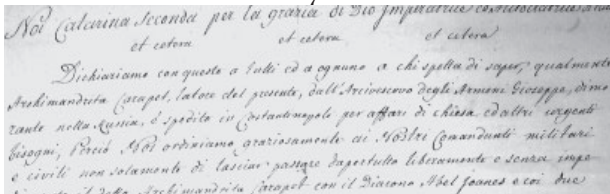 Noi Catarina Seconda per la grazia di Dio Imperatrice
et cetera et cetera et cetera
Dichiariamo con questo a tutti ed a ognuno a chi spetta di saper, qualmente
Archimandrita Carapet, latore del presente, dall'Arcivescovo degli Armeni Gioseppe, dimo
rante nella Russia, è spedito in Costantinopole per affari di chiesa ed altri urgenti
bisogni, Perciò Noi ordiniamo graziosamente ai Nostri Comandanti militari
e civili non solamente di lasciar passare dapertutto liberamente e senza impe
il detto Archimandrita Carapet con il Diacono, Abel Joanes e coi due